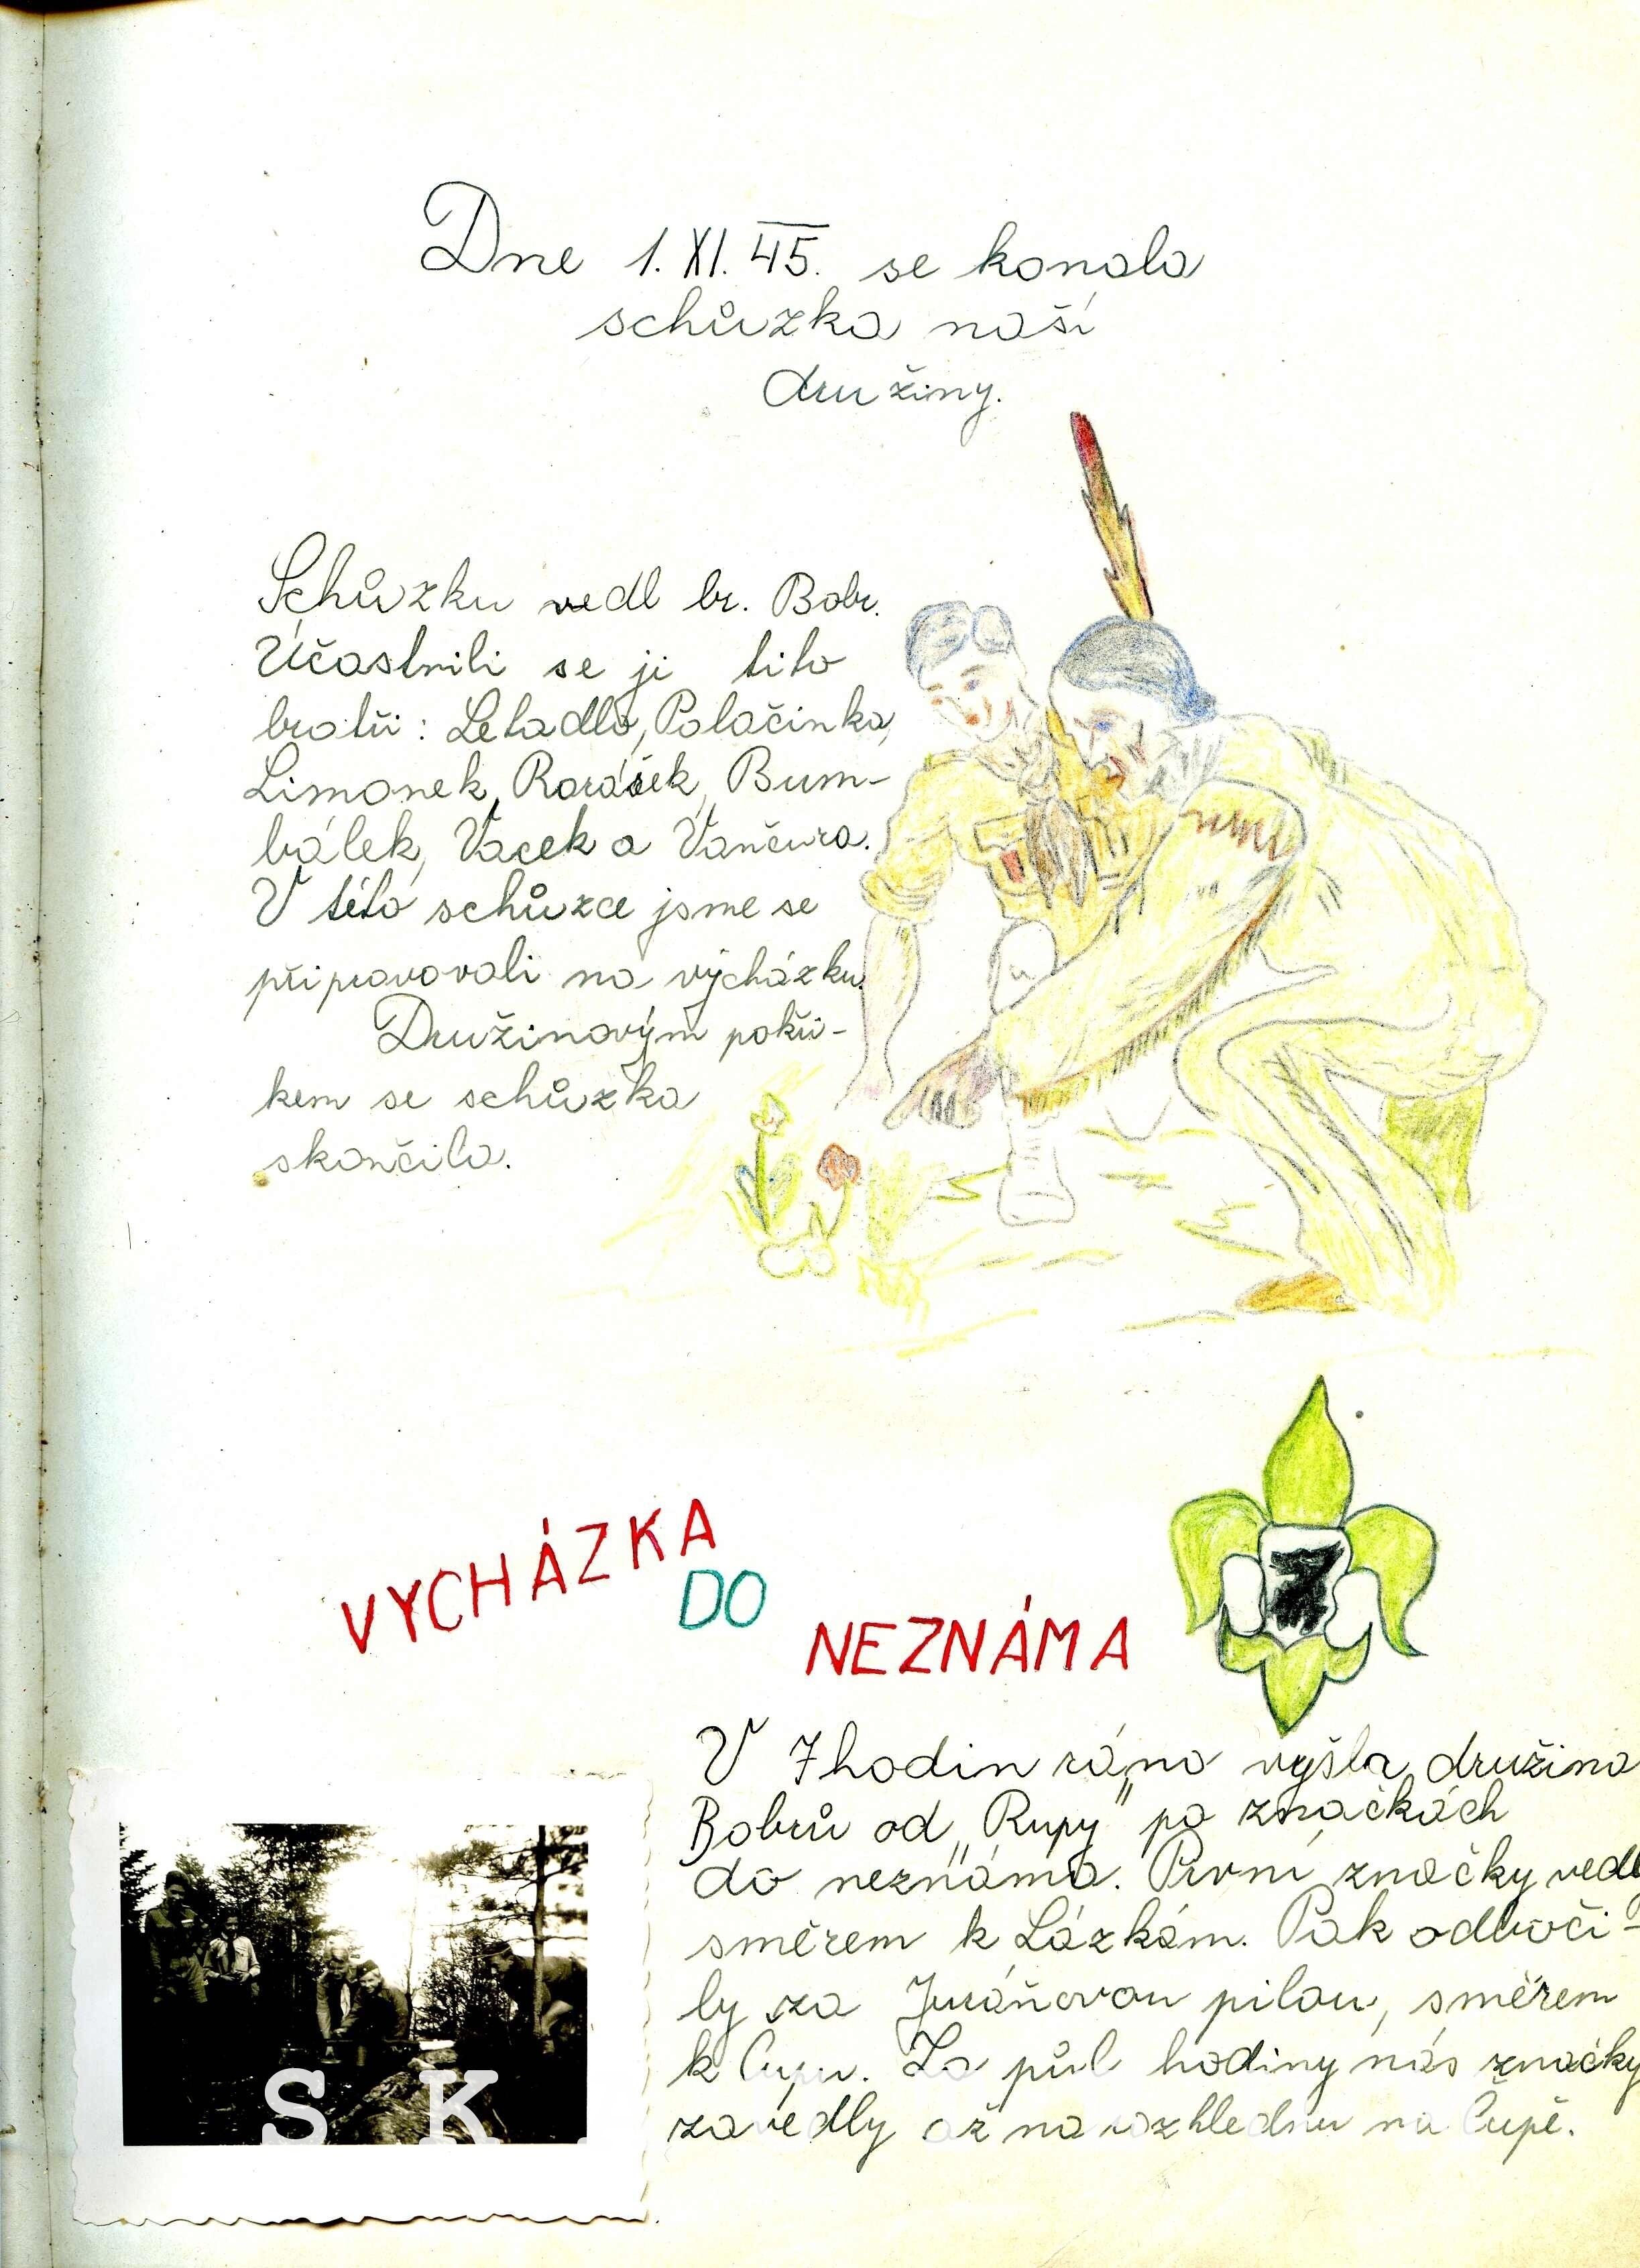 Dne 1. XI. 45. se konala
schůzka naší
družiny.
Schůzku vedl br. Bobr.
Účastnili se ji tito
bratři: Letadlo, Palačinka,
Limonek, Rarášek, Bum-
bálek, Vacek a Vančura.
V této schůzce jsme se
připravovali na vycházku.
Družinovým pokři-
kem se schůzka
skončila.
VYCHÁZKA
DO
NEZNÁMA
7
V 7 hodin ráno vyšla družina
Bobrů od „Rupy" po značkách
do neznáma. První značky vedly
směrem k Lázkám. Pak odboči-
ly za Juráňovou pilou, směrem
k Čupu. Za půl hodiny nás značky
zavedly až na rozhlednu na Čupě.
S K